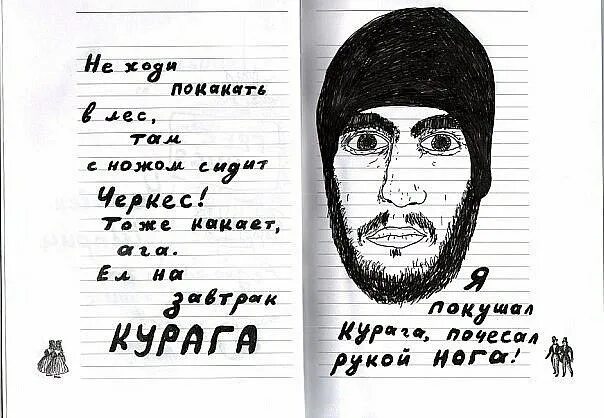 Не ходи
покакать
в лес,
там
с ножом сидит
Черкес!
Тоже какает,
ага.
Ел на
завтрак
КУРАГА
Я
покушал
курага, почесал
рукой нога!